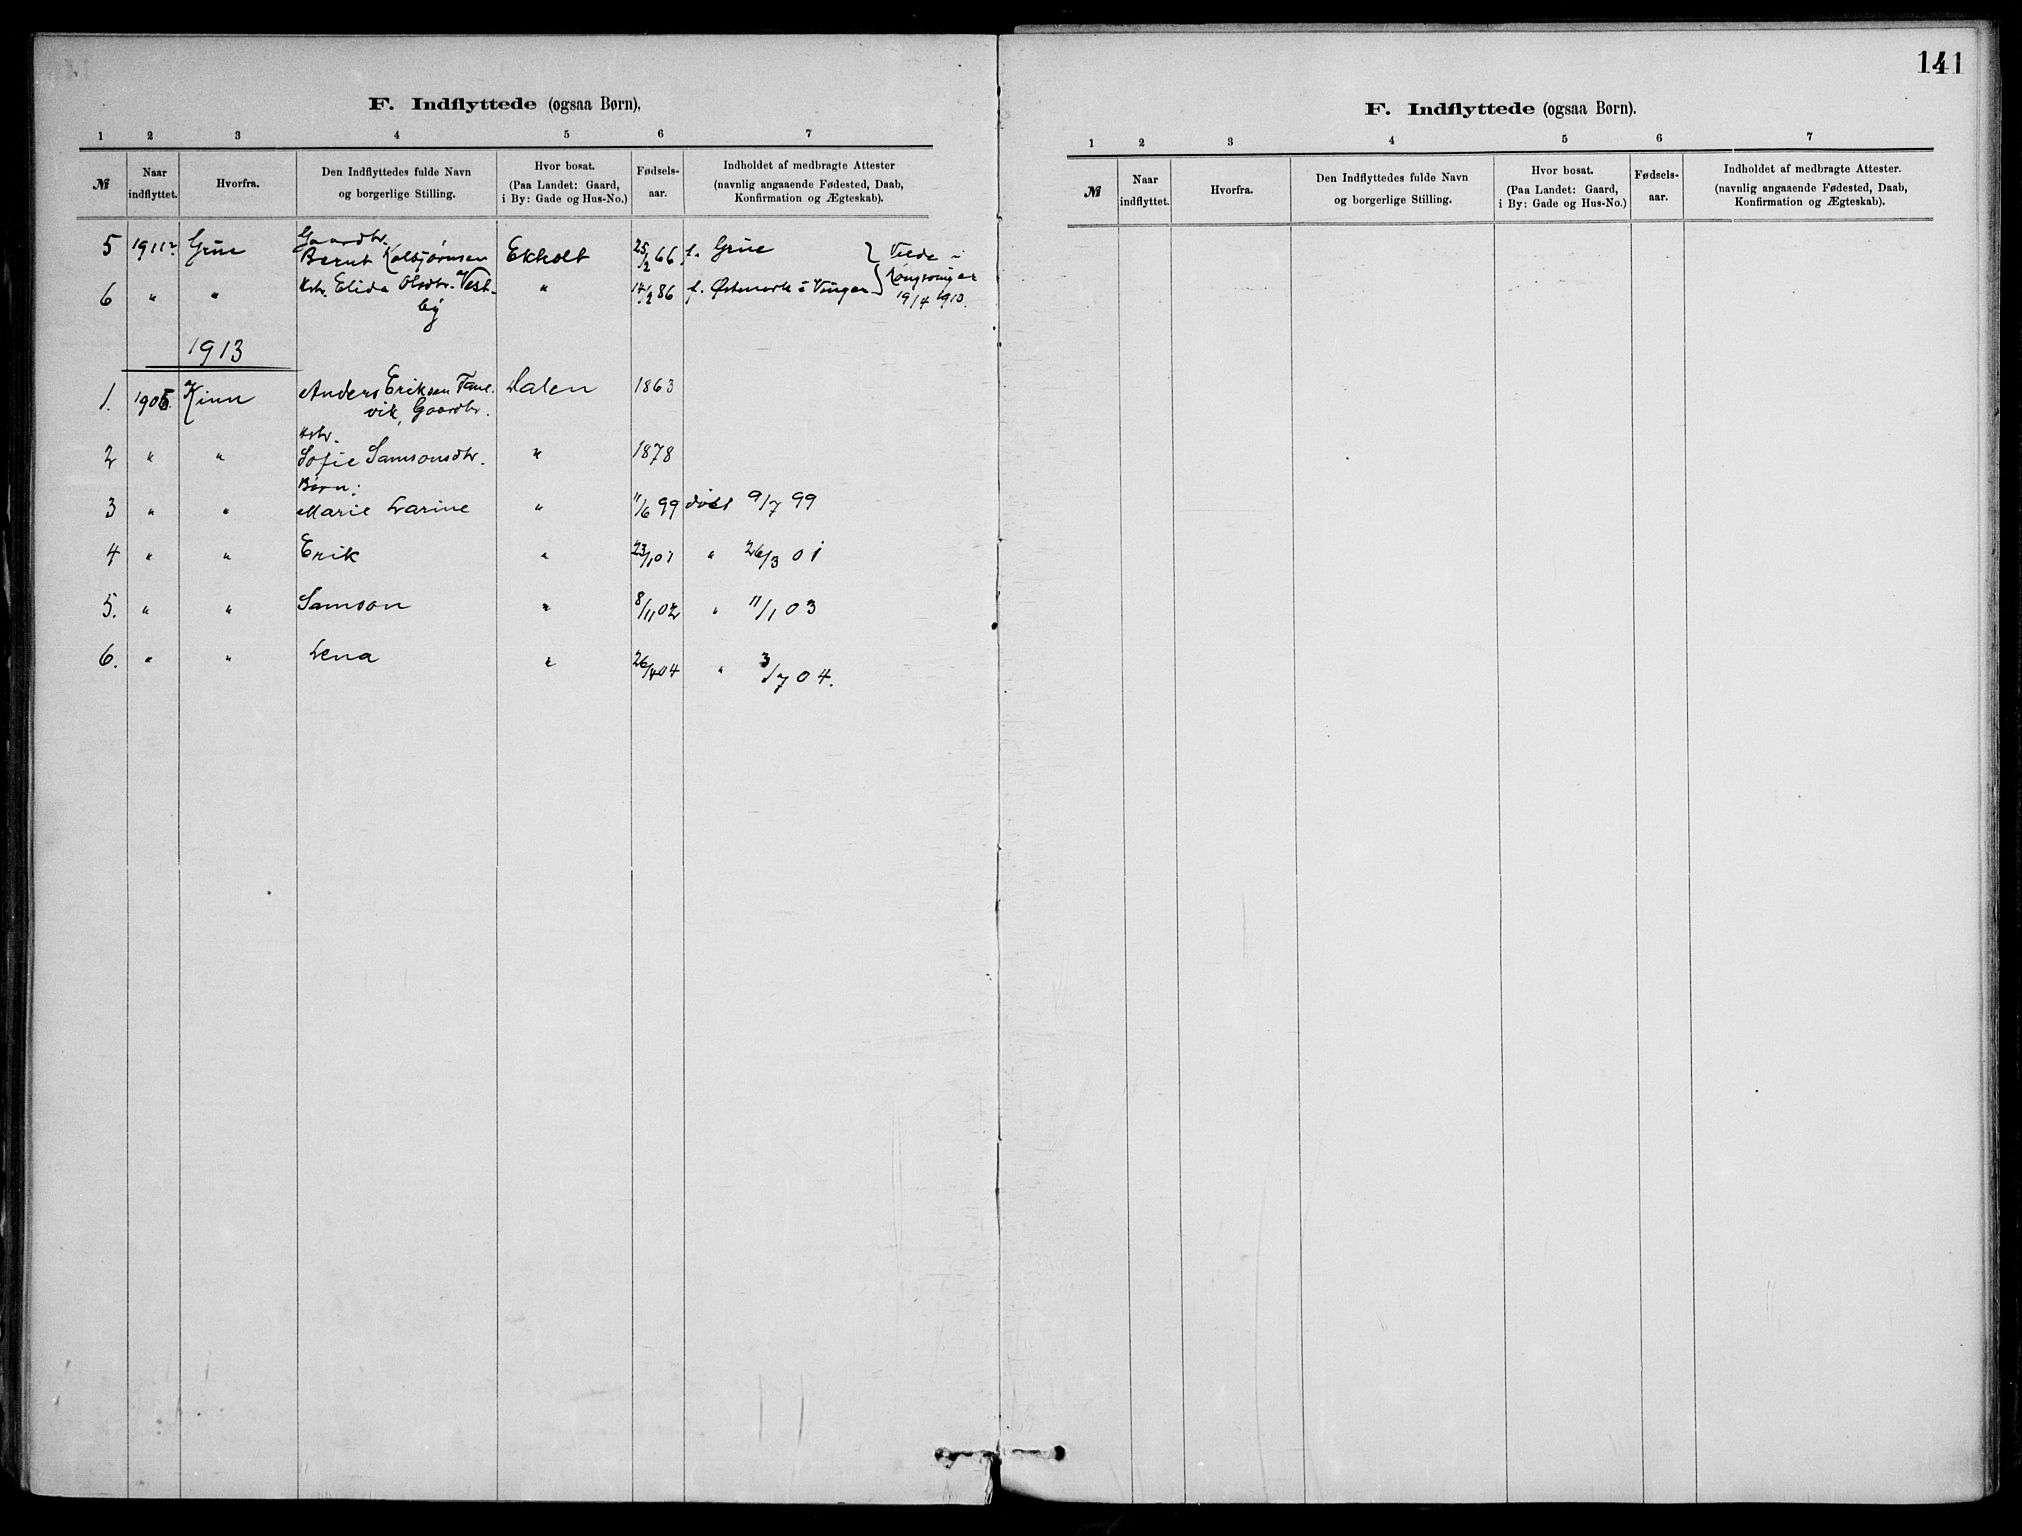 F. Indflyttede (ogsaa Børn).
1 2 3 4 5 6 7
№ Naar indflyttet. Hvorfra. Den Indflyttedes fulde Navn og borgerlige Stilling. Hvor bosat. (Paa Landet: Gaard, i By: Gade og Hus-No.) Fødsels-aar. Indholdet af medbragte Attester (navnlig angaaende Fødested, Daab, Konfirmation og Ægteskab).
Gaardbr.
5 1911 Grue Bernt Kolbjørnsen Ekholt 25/2 66 f. Grue } Viede i
6 " " Kstr. Elida Olsdtr. Vest- " 14/2 86 f. Østmark i Vinger } Kongsvinger
by 19/4 1913.
1913
1. 1905. Kinn Anders Eriksen Dalen 1863
vik, Gaardbr.
Kstr.
2 " " Sofie Samsonsdtr. " 1878
Børn:
3 " " Marie Larine " 11/6 99 døbt 9/7 99
4 " " Erik " 23/1 01 " 26/3 01
5. " " Samson " 8/11 02 " 11/1 03
6. " " Lena " 26/4 04 " 3/7 04.
141
F. Indflyttede (ogsaa Børn).
1 2 3 4 5 6 7
№ Naar indflyttet. Hvorfra. Den Indflyttedes fulde Navn og borgerlige Stilling. Hvor bosat. (Paa Landet: Gaard, i By: Gade og Hus-No.) Fødsels-aar. Indholdet af medbragte Attester. (navnlig angaaende Fødested, Daab, Konfirmation og Ægteskab).